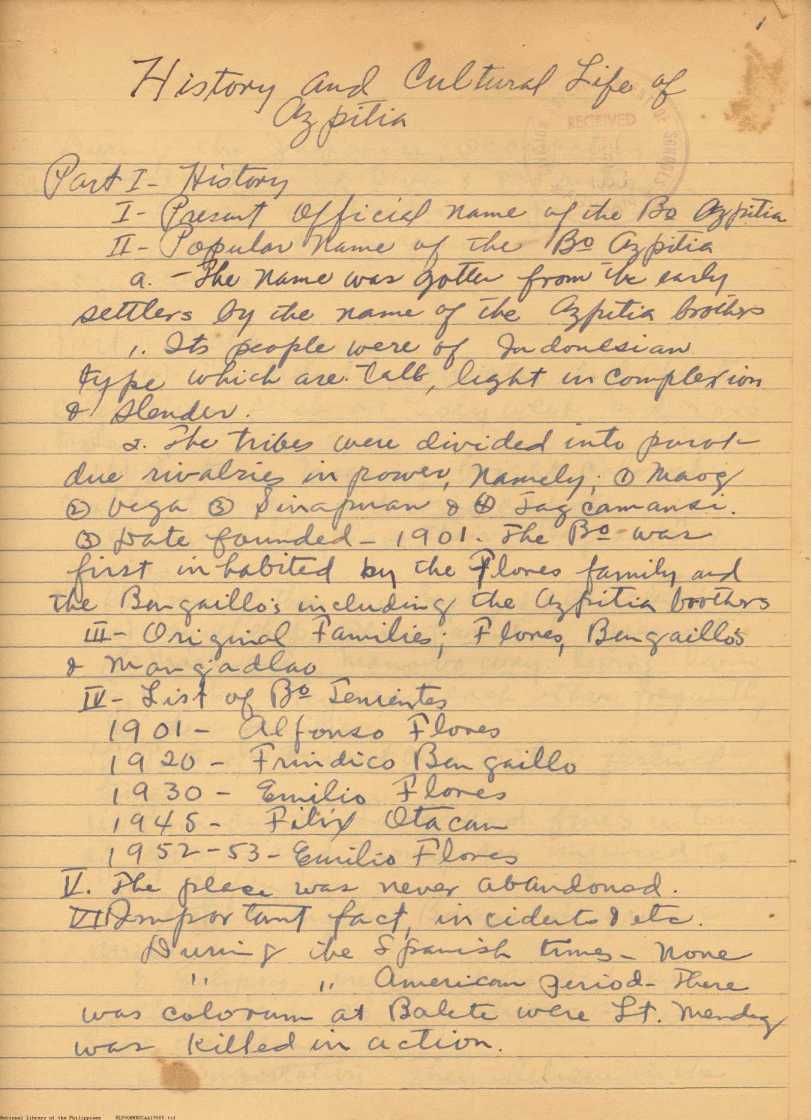 1
History and Cultural Life of
Azpitia
RECEIVED
Part I - History
I - Present Official name of the Bo Azpitia
II - Popular Name of the Bo Azpitia
a. - The name was gotten from the early
settlers by the name of the Azpitia brothers
1. Its people were of Indonesian
type which are tall, light in complexion
& slender.
2. The tribes were divided into purok
due rivalries in power, namely; ① Maog
② Vega ③ Sinapman & ④ Tagcamansi.
③ Date founded - 1901. The Bo was
first inhabited by the Flores family and
the Bengaillo's including the Azpitia brothers
III - Original Families; Flores, Bengaillo's
& Mangadlao
IV - List of Bo Tenientes
1901 - Alfonso Flores
1920 - Frindico Bengaillo
1930 - Emilio Flores
1945 - Filix Otacan
1952-53 - Emilio Flores
V. The place was never abandoned.
VI Important fact, incidents & etc.
During the Spanish times - None
" " American period - There
was colorum at Balete were Lt. Mendez
was killed in action.
National Library of the Philippines